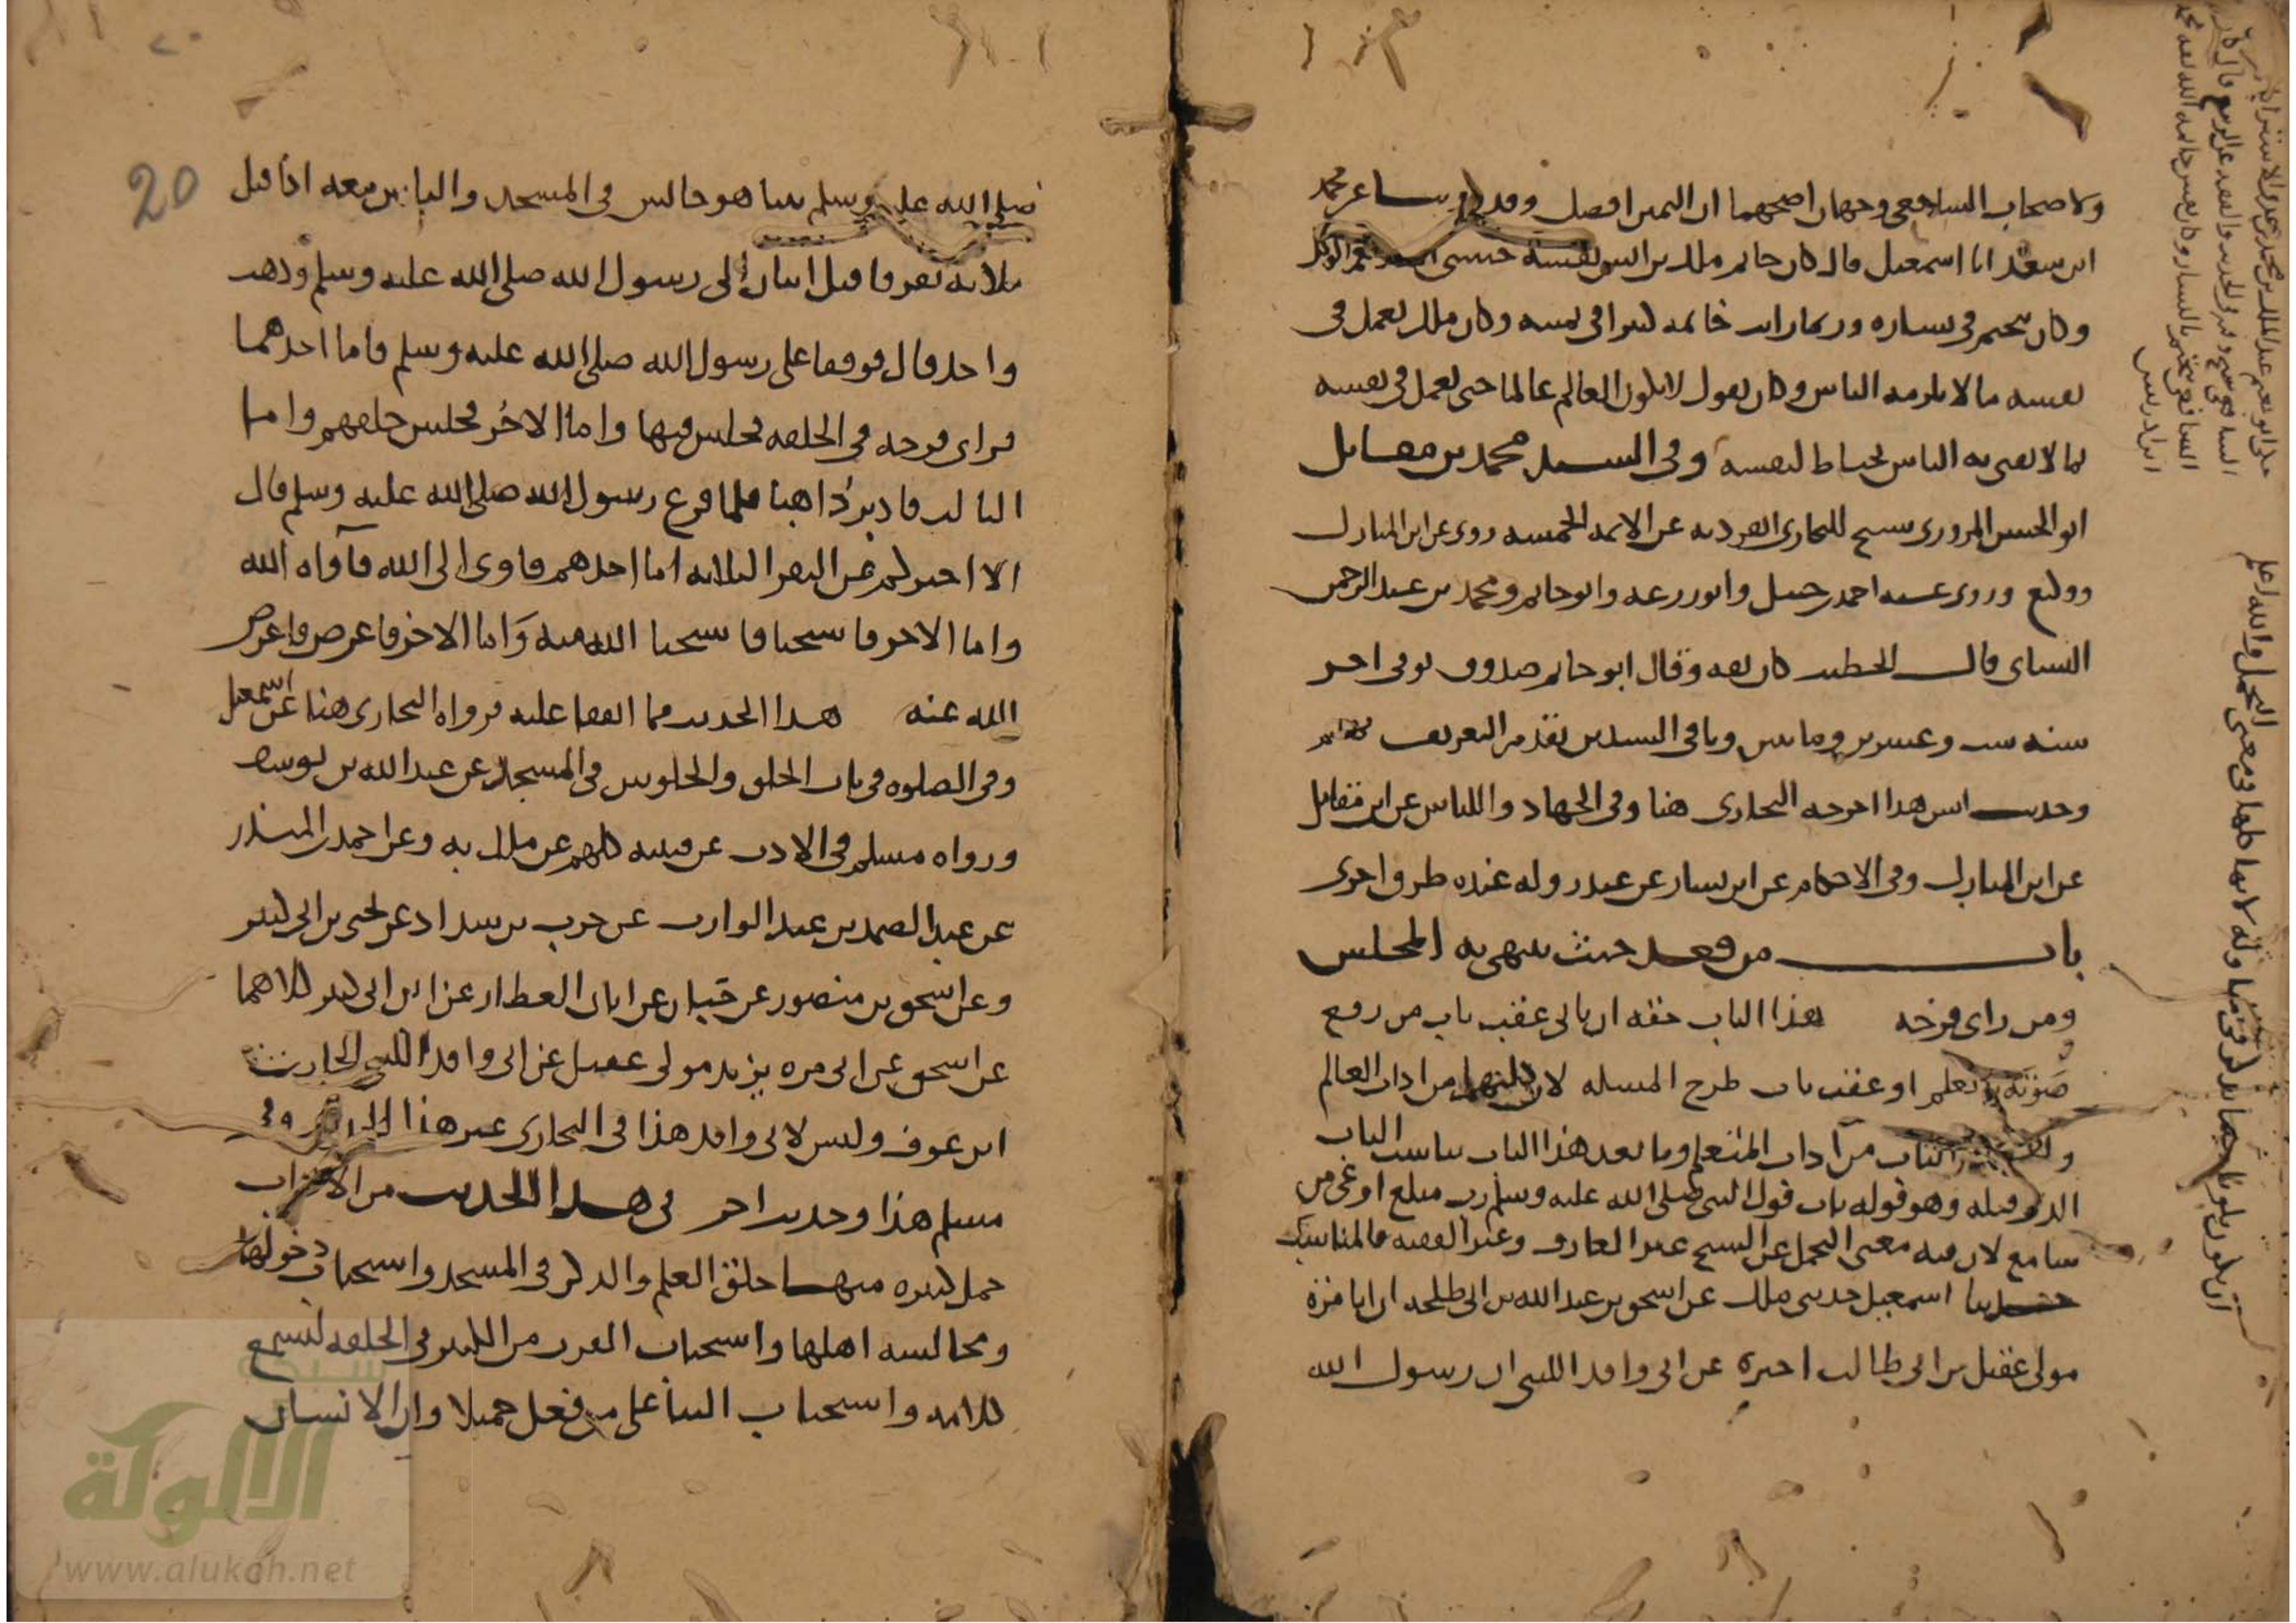 ولاصحاب الشافعي وجهان اصحهما ان اليمين افضل وقد محمد
ابن سعد انا اسمعيل قال كان خاتم ملك بن انس فضة حسبي الله ونعم الوكيل
وكان يتختم في يساره وربما رايت خاتمه كثيرا في يمينه وكان ملك يعمل في
نفسه ما لا يلزمه الناس وكان يقول لا يكون العالم عالما حتى يعمل في نفسه
بما لا يفتي به الناس يحتاط لنفسه وفي السند محمد بن مقاتل
ابو الحسن المروزي شيخ للبخاري انفرد به عن الايمه الخمسه روى عن ابن المبارك
ووكيع وروى عنه احمد بن حنبل وابو زرعه وابو حاتم ومحمد بن عبد الرحمن
النساي قال الخطيب كان ثقه وقال ابو حاتم صدوق توفي اخر
سنه ست وعشرين ومايتين وباقي السند تقدم التعريف بهم
وحديث انس هذا اخرجه البخاري هنا وفي الجهاد واللباس عن ابن مقاتل
عن ابن المبارك وفي الاحكام عن ابن بشار عن غندر وله عنده طرق اخرى
باب من قعد حيث ينتهي به المجلس
ومن راى فرجه هذا الباب حقه ان ياتي عقب باب من رفع
صوته بالعلم او عقب باب طرح المسله لان كليهما من اداب العالم
الباب من اداب المتعلم وما بعد هذا الباب يناسب الباب
الذي قبله وهو قوله باب قول النبي صلى الله عليه وسلم رب مبلغ اوعى من
سامع لان فيه معنى التحمل عن الشيخ غير العارف وغير الفقيه فالمناسبة
حدثنا اسمعيل حدثني ملك عن اسحق بن عبد الله بن ابي طلحه ان ابا مره
مولى عقيل بن ابي طالب اخبره عن ابي واقد الليثي ان رسول الله
ان يكون
التحمل والله اعلم
الشافعي يتختم باليسار
ابن ادريس
20
صلى الله عليه وسلم بينما هو جالس في المسجد والناس معه اذ اقبل
ثلاثه نفر فاقبل اثنان الى رسول الله صلى الله عليه وسلم وذهب
واحد قال فوقفا على رسول الله صلى الله عليه وسلم فاما احدهما
فراى فرجه في الحلقه فجلس فيها واما الاخر فجلس خلفهم واما
الثالث فادبر ذاهبا فلما فرغ رسول الله صلى الله عليه وسلم قال
الا اخبركم عن النفر الثلاثه اما احدهم فاوى الى الله فآواه الله
واما الاخر فاستحيا فاستحيا الله منه واما الاخر فاعرض فاعرض
الله عنه هذا الحديث مما اتفقا عليه فرواه البخاري هنا عن اسمعيل
وفي الصلوه في باب الحلق والجلوس في المسجد عن عبد الله بن يوسف
ورواه مسلم في الادب عن قتيبه كلهم عن ملك به وعن احمد بن المنذر
عن عبد الصمد بن عبد الوارث عن حرب بن شداد عن يحيى بن ابي كثير
وعن اسحق بن منصور عن حبان عن ابان العطار عن ابن ابي كثير كلاهما
عن اسحق عن ابي مره يزيد مولى عقيل عن ابي واقد الليثي الحارث
ابن عوف وليس لابي واقد هذا في البخاري غير هذا الحديث وفي
مسلم هذا وحديث اخر في هذا الحديث من الاداب
جمل كثيره منها حلق العلم والذكر في المسجد واستحباب دخولها
ومجالسه اهلها واستحباب القرب من الكبير في الحلقه ليسمع
كلامه واستحباب الثنا على من فعل جميلا وان الانسان
شبكة
الألوكة
www.alukah.net